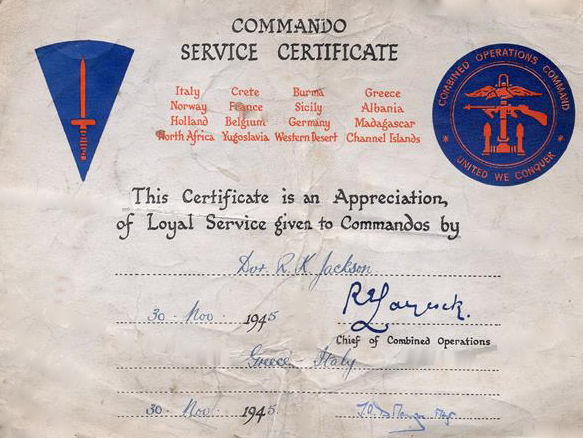 COMMANDO
SERVICE CERTIFICATE
Italy Crete Burma Greece
Norway France Sicily Albania
Holland Belgium Germany Madagascar
North Africa Yugoslavia Western Desert Channel Islands
COMBINED OPERATIONS COMMAND
* UNITED WE CONQUER *
This Certificate is an Appreciation,
of Loyal Service given to Commandos by
Dvr. R. K. Jackson
30 · Nov · 1945
Chief of Combined Operations
Greece - Italy
30 · Nov · 1945